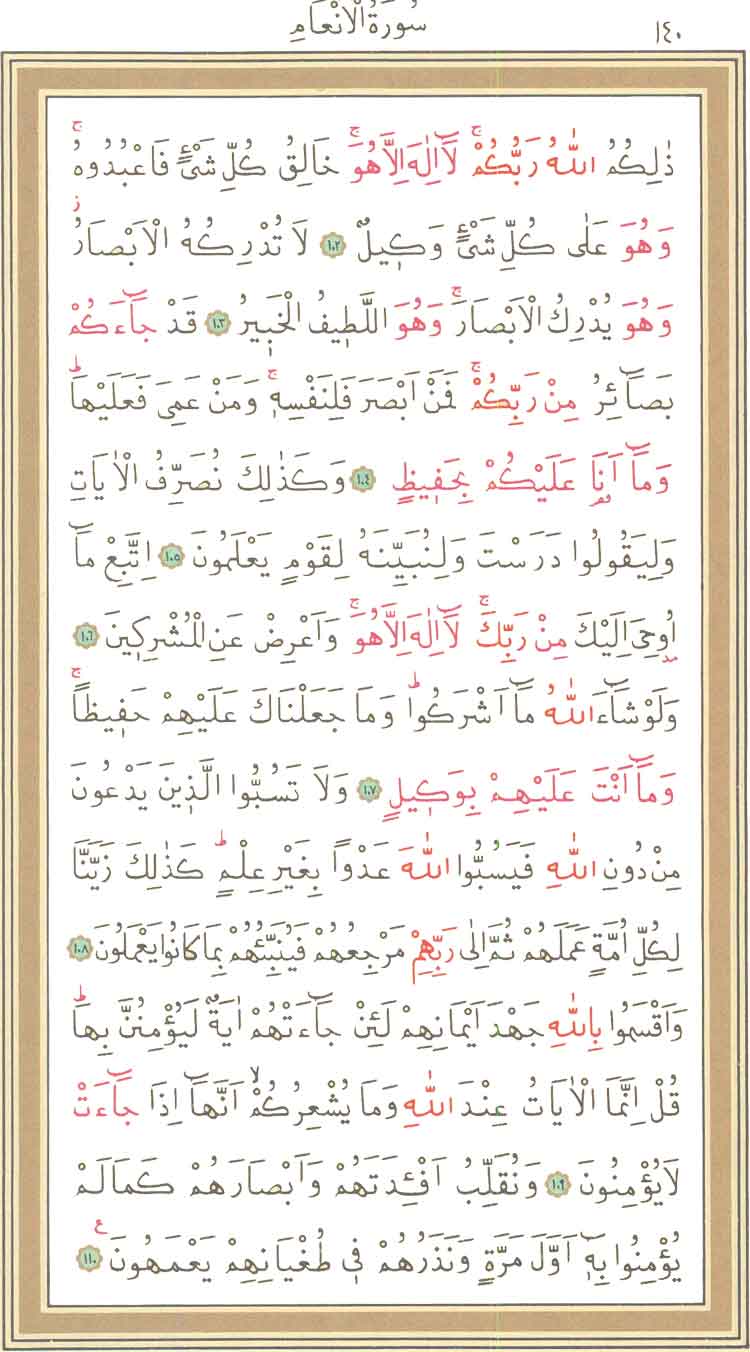 ١٤٠
سُورَةُ الْاَنْعَامِ
ذٰلِكُمُ اللّٰهُ رَبُّكُمْۚ لَٓا اِلٰهَ اِلَّا هُوَۚ خَالِقُ كُلِّ شَيْءٍ فَاعْبُدُوهُۚ
وَهُوَ عَلٰى كُلِّ شَيْءٍ وَكٖيلٌ ﴿١٠٢﴾ لَا تُدْرِكُهُ الْاَبْصَارُؗ
وَهُوَ يُدْرِكُ الْاَبْصَارَۚ وَهُوَ اللَّطٖيفُ الْخَبٖيرُ ﴿١٠٣﴾ قَدْ جَٓاءَكُمْ
بَصَٓائِرُ مِنْ رَبِّكُمْۚ فَمَنْ اَبْصَرَ فَلِنَفْسِهٖۚ وَمَنْ عَمِيَ فَعَلَيْهَاؕ
وَمَٓا اَنَا۬ عَلَيْكُمْ بِحَفٖيظٍ ﴿١٠٤﴾ وَكَذٰلِكَ نُصَرِّفُ الْاٰيَاتِ
وَلِيَقُولُوا دَرَسْتَ وَلِنُبَيِّنَهُ لِقَوْمٍ يَعْلَمُونَ ﴿١٠٥﴾ اِتَّبِعْ مَٓا
اُو۫حِيَ اِلَيْكَ مِنْ رَبِّكَۚ لَٓا اِلٰهَ اِلَّا هُوَۚ وَاَعْرِضْ عَنِ الْمُشْرِكٖينَ ﴿١٠٦﴾
وَلَوْ شَٓاءَ اللّٰهُ مَٓا اَشْرَكُواؕ وَمَا جَعَلْنَاكَ عَلَيْهِمْ حَفٖيظًاۚ
وَمَٓا اَنْتَ عَلَيْهِمْ بِوَكٖيلٍ ﴿١٠٧﴾ وَلَا تَسُبُّوا الَّذٖينَ يَدْعُونَ
مِنْ دُونِ اللّٰهِ فَيَسُبُّوا اللّٰهَ عَدْوًا بِغَيْرِ عِلْمٍؕ كَذٰلِكَ زَيَّنَّا
لِكُلِّ اُمَّةٍ عَمَلَهُمْ ثُمَّ اِلٰى رَبِّهِمْ مَرْجِعُهُمْ فَيُنَبِّئُهُمْ بِمَا كَانُوا يَعْمَلُونَ ﴿١٠٨﴾
وَاَقْسَمُوا بِاللّٰهِ جَهْدَ اَيْمَانِهِمْ لَئِنْ جَٓاءَتْهُمْ اٰيَةٌ لَيُؤْمِنُنَّ بِهَاؕ
قُلْ اِنَّمَا الْاٰيَاتُ عِنْدَ اللّٰهِ وَمَا يُشْعِرُكُمْۙ اَنَّهَٓا اِذَا جَٓاءَتْ
لَا يُؤْمِنُونَ ﴿١٠٩﴾ وَنُقَلِّبُ اَفْـِٔدَتَهُمْ وَاَبْصَارَهُمْ كَمَا لَمْ
يُؤْمِنُوا بِهٖٓ اَوَّلَ مَرَّةٍ وَنَذَرُهُمْ فٖي طُغْيَانِهِمْ يَعْمَهُونَ ﴿١١٠﴾ ع